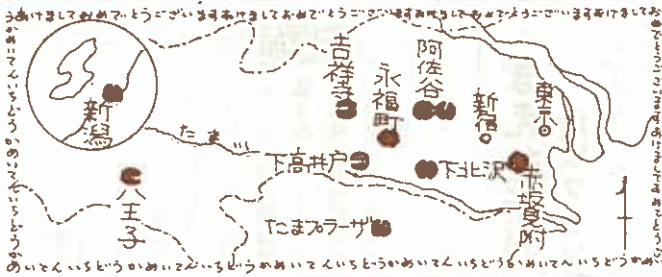 うあけましておめでとうございますあけましておめでとうございますあけましておめでとうございますあけましてお
吉祥寺
阿佐谷
永福町
新宿
東京
新潟
たま
下高井戸
下北沢
赤坂見附
八王子
たまプラーザ
めいてんいちどうかめいてんいちどうかめいてんいちどうかめいてんいちどうかめい